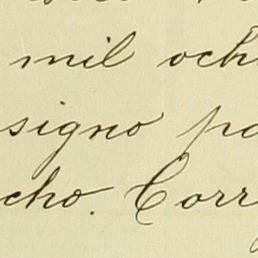 mil och
signo pa
cho. Corr